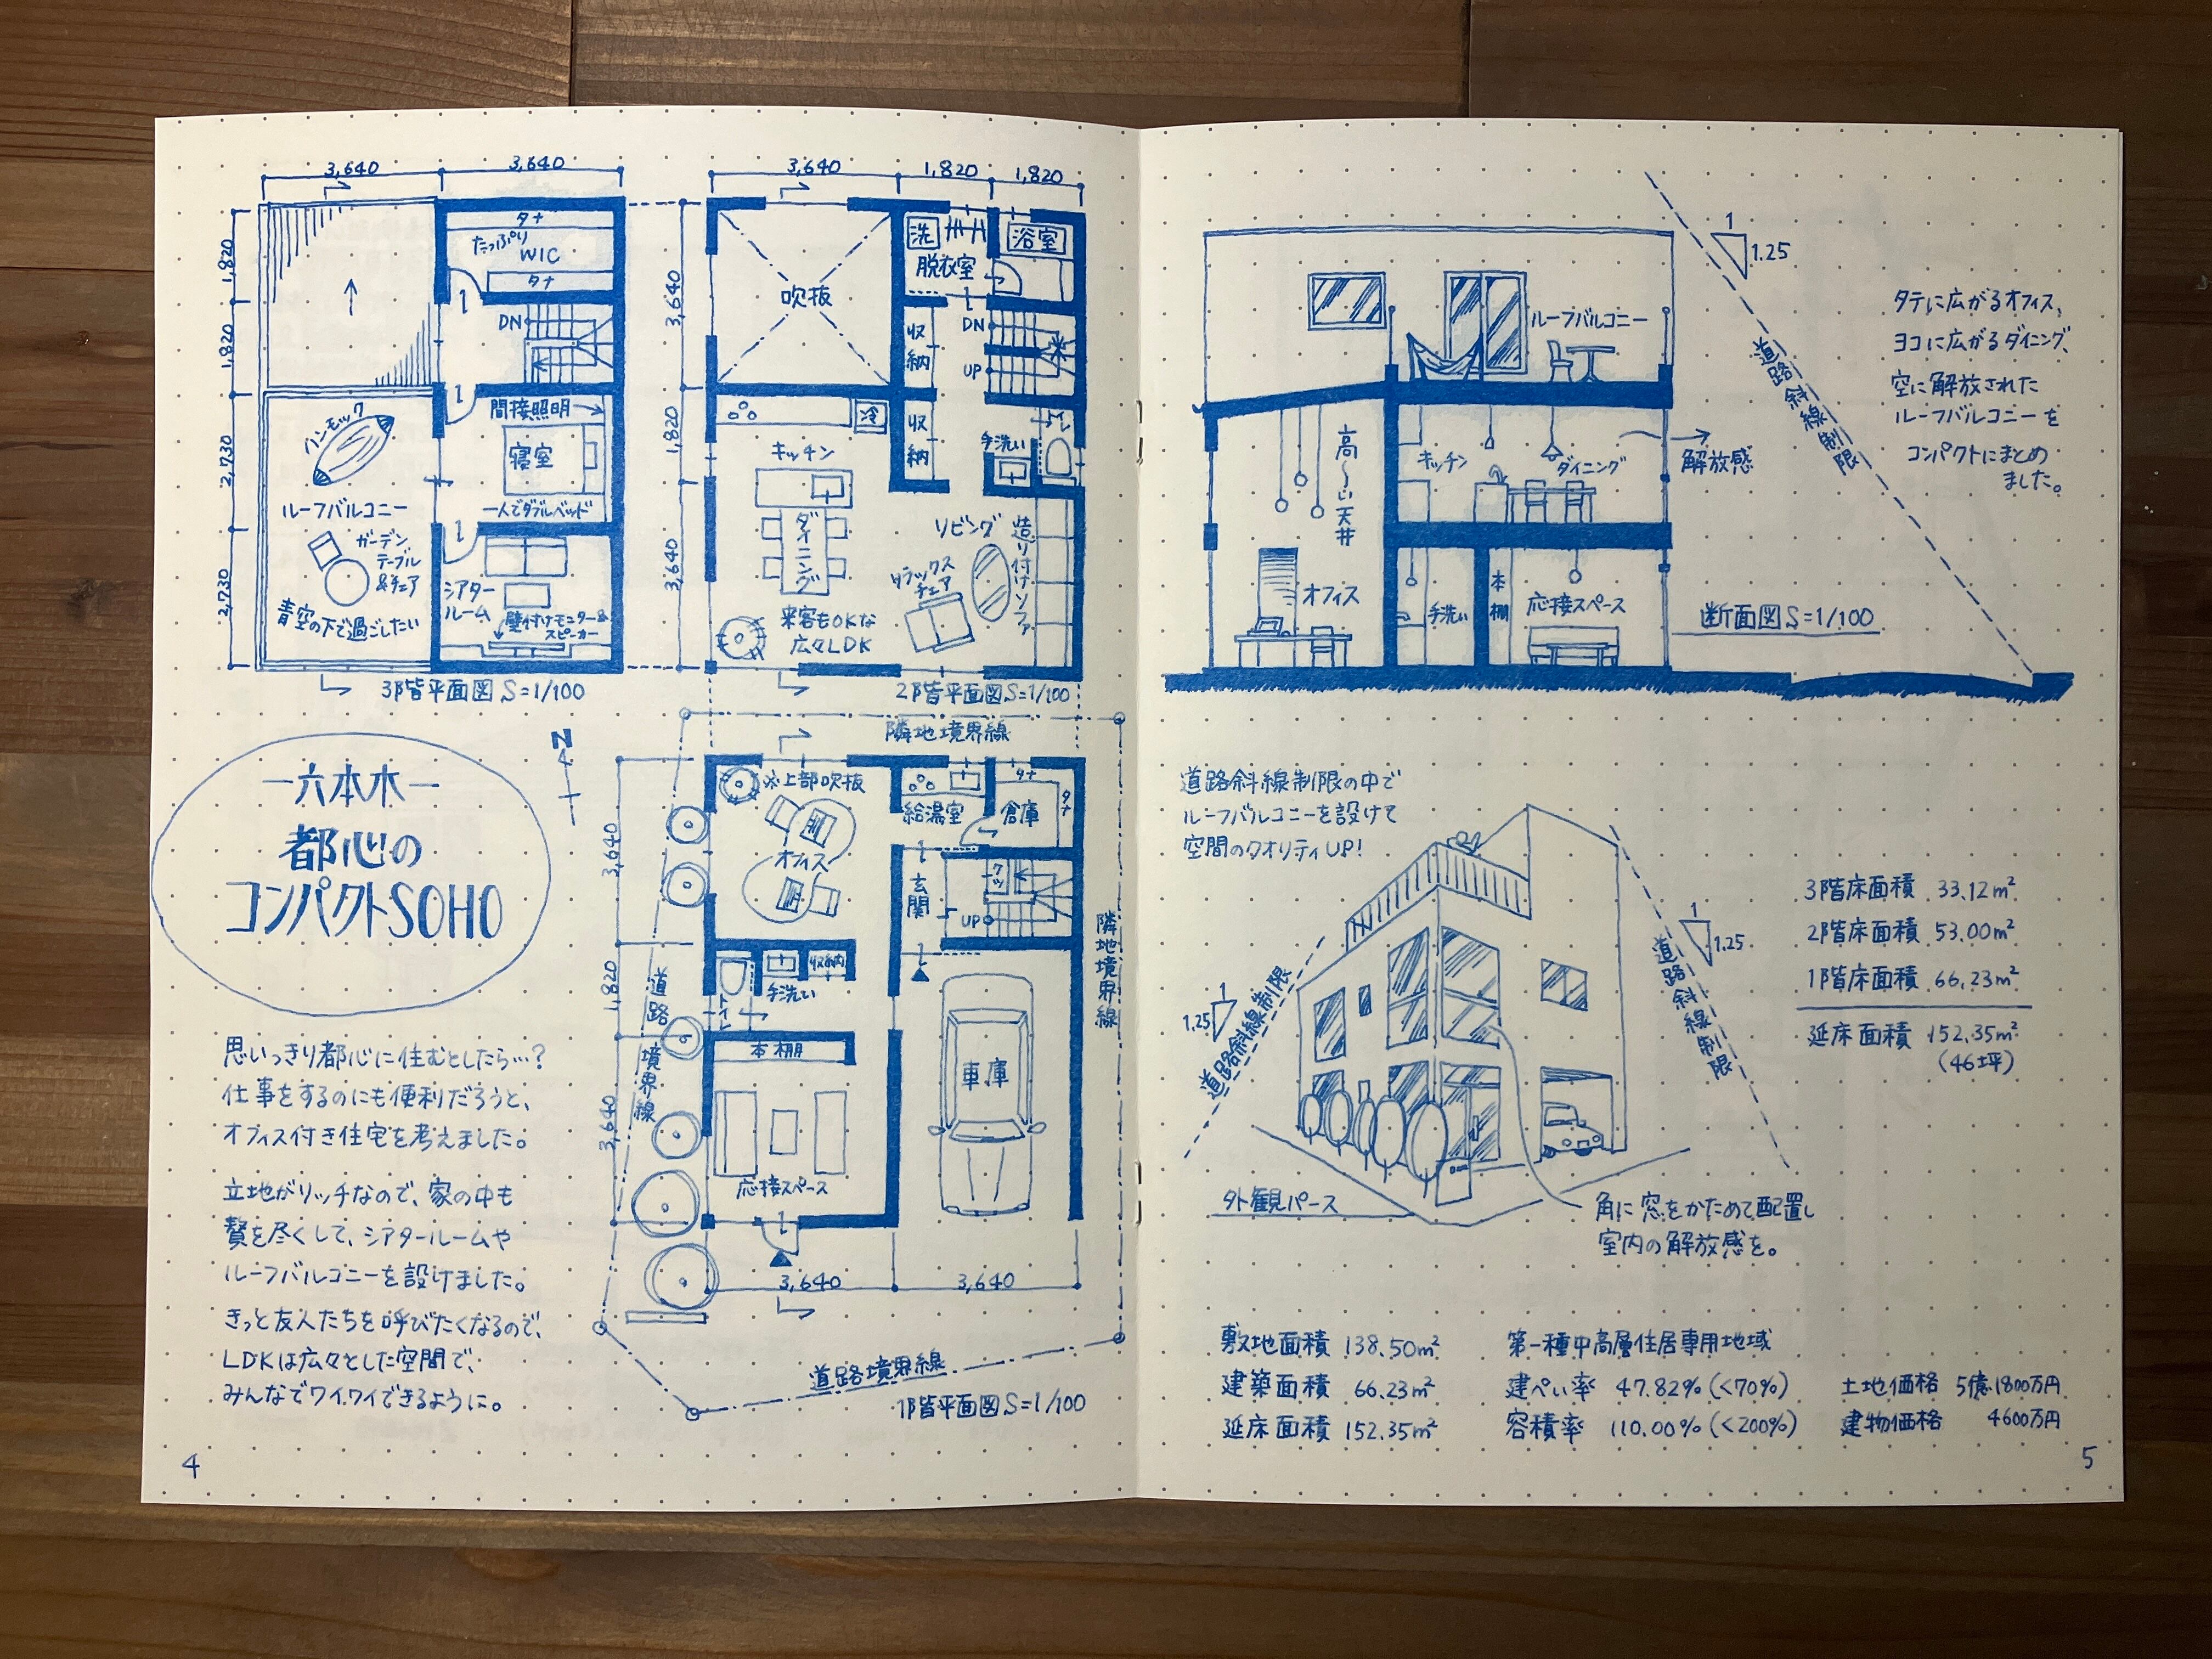 3,640
3,640
1,820
1,820
2,730
2,730
タナ
たっぷり
WIC
タナ
DN
間接照明
寝室
一人でダブルベッド
ハンモック
ルーフバルコニー
ガーデン
テーブル
&チェア
青空の下で過ごしたい
シアター
ルーム
壁付けモニター&
スピーカー
3階平面図 S=1/100
3,640
1,820
1,820
3,640
1,820
3,640
吹抜
洗
脱衣室
浴室
収納
DN
UP
収納
冷
キッチン
手洗い
トイレ
ダイニング
リビング
造り付けソファ
リラックス
チェア
来客もOKな
広々LDK
2階平面図 S=1/100
N
ー六本木ー
都心の
コンパクトSOHO
思いっきり都心に住むとしたら…?
仕事をするのにも便利だろうと、
オフィス付き住宅を考えました。
立地がリッチなので、家の中も
贅を尽くして、シアタールームや
ルーフバルコニーを設けました。
きっと友人たちを呼びたくなるので、
LDKは広々とした空間で、
みんなでワイワイできるように。
隣地境界線
※上部吹抜
オフィス
給湯室
倉庫
タナ
タナ
玄関
クツ
UP
隣地境界線
3,640
1,820
3,640
道路境界線
トイレ
手洗い
収納
本棚
応接スペース
車庫
3,640
3,640
道路境界線
1階平面図 S=1/100
4
1
1.25
道路斜線制限
ルーフバルコニー
高〜い天井
キッチン
ダイニング
解放感
オフィス
手洗い
本棚
応接スペース
断面図 S=1/100
タテに広がるオフィス、
ヨコに広がるダイニング、
空に解放された
ルーフバルコニーを
コンパクトにまとめ
ました。
道路斜線制限の中で
ルーフバルコニーを設けて
空間のクオリティUP!
1
1.25
道路斜線制限
1
1.25
道路斜線制限
外観パース
角に窓をかためて配置し
室内の解放感を。
3階床面積 33.12㎡
2階床面積 53.00㎡
1階床面積 66.23㎡
延床面積 152.35㎡
(46坪)
敷地面積 138.50㎡
建築面積 66.23㎡
延床面積 152.35㎡
第一種中高層住居専用地域
建ぺい率 47.82% (<70%)
容積率 110.00% (<200%)
土地価格 5億1800万円
建物価格 4600万円
5